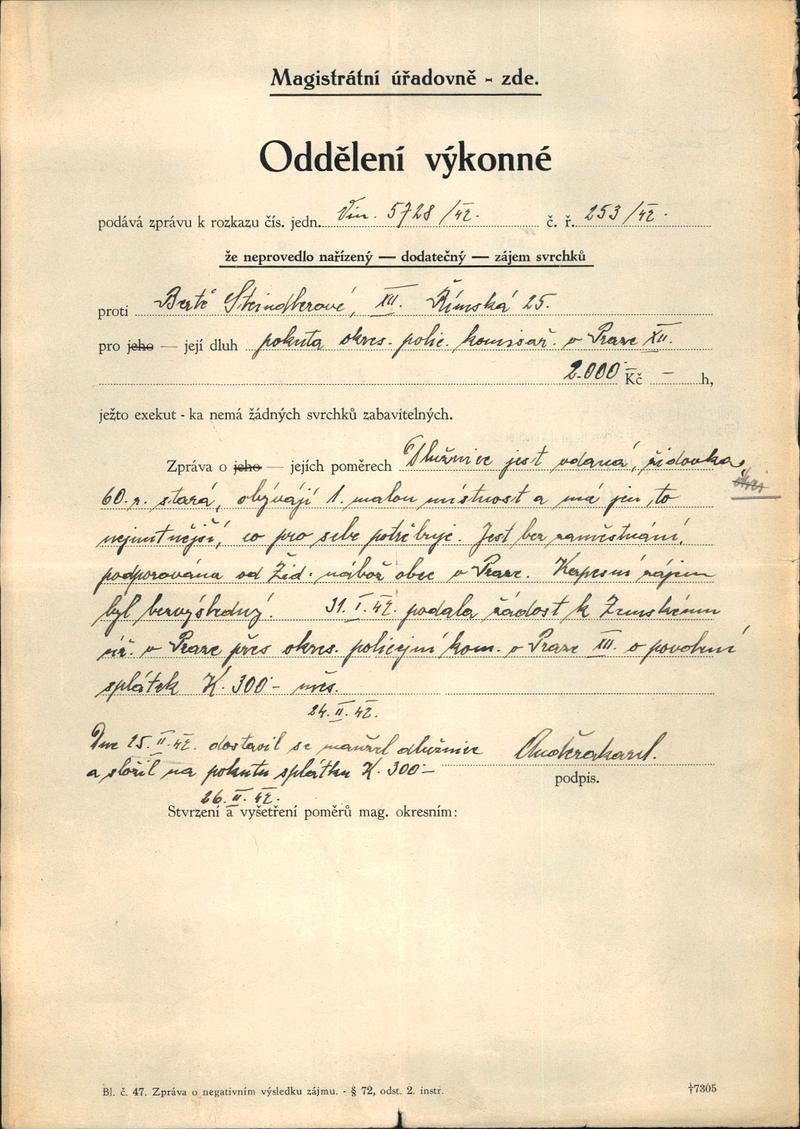 Magistrátní úřadovně - zde.
Oddělení výkonné
podává zprávu k rozkazu čís. jedn. Vin. 5728/42. č. ř. 253/42.
že neprovedlo nařízený — dodatečný — zájem svrchků
proti Bertě Steindlerové, XII. Římská 25.
pro jeho — její dluh pokuta okres. polic. komisař. v Praze XII.
2.000·– Kč – h,
ježto exekut - ka nemá žádných svrchků zabavitelných.
Zpráva o jeho — jejích poměrech Dlužnice jest vdaná, židovka,
60. r. stará, obývají 1. malou místnost a má jen to
nejnutnější, co pro sebe potřebuje. Jest bez zaměstnání,
podporována od Žid. nábož obce v Praze. Kapesní zájem
byl bezvýsledný. 31. I. 42. podala žádost k Zemskému
úř. v Praze přes okres. policejní kom. v Praze XII. o povolení
splátek K. 300·– měs.
24. II. 42.
Dne 25. II. 42. dostavil se manžel dlužnice
a složil na pokutu splátku K. 300·–
podpis.
26. II. 42.
Stvrzení a vyšetření poměrů mag. okresním:
Bl. č. 47. Zpráva o negativním výsledku zájmu. - § 72, odst. 2. instr. †7305